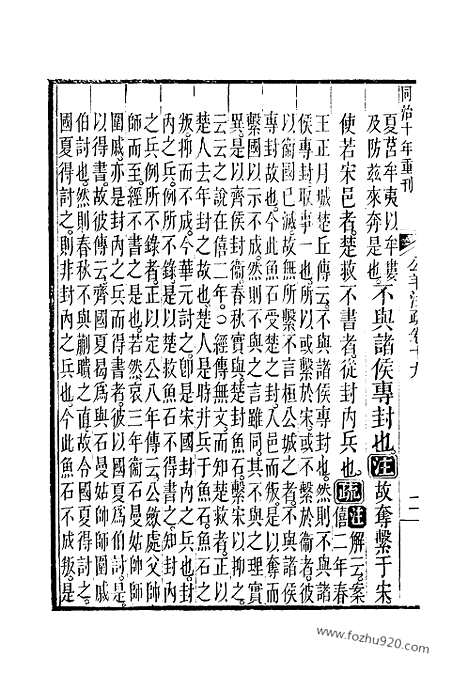 同治十年重刊
公羊注疏卷十九
二
夏莒牟夷以牟婁
及防茲來奔是也
不與諸侯專封也注故奪繫于宋
使若宋邑者楚救不書者從封內兵也疏
注解云案
僖二年春
王正月城楚丘傳云不與諸侯專封也然則不與諸
侯專封取事一也所以或繫於宋或不繫於衛者彼
以衛國已滅故無所繫不言桓公城之者不與諸侯
專封故也今此魚石受楚之封入邑而叛是以奪而
繫國以示不成然則不與之言雖同其不與之理實
異是以齊侯封衛春秋實與楚封魚石繫宋以抑之
云云之說在僖二年○經傳無文而知楚救者正以
楚人去年封之故也楚人是時并兵于魚石魚石之
叛抑而不成今華元討之卽是宋國封內之兵也封
內之兵例所不錄是以楚救魚石不得書之知封內
之兵例所不錄者正以定公八年傳云公斂處父帥
師而至經不書之是也若然哀三年衛石曼姑帥師
圍戚亦是封內之兵而得書者彼以國夏爲伯討是
以得書故彼傳云齊國夏曷爲與石曼姑帥師圍戚
伯討也然則春秋不與蒯聵之直故令國夏得討之
國夏得討之則非封內之兵也今此魚石不成叛是
www.fozhu920.com